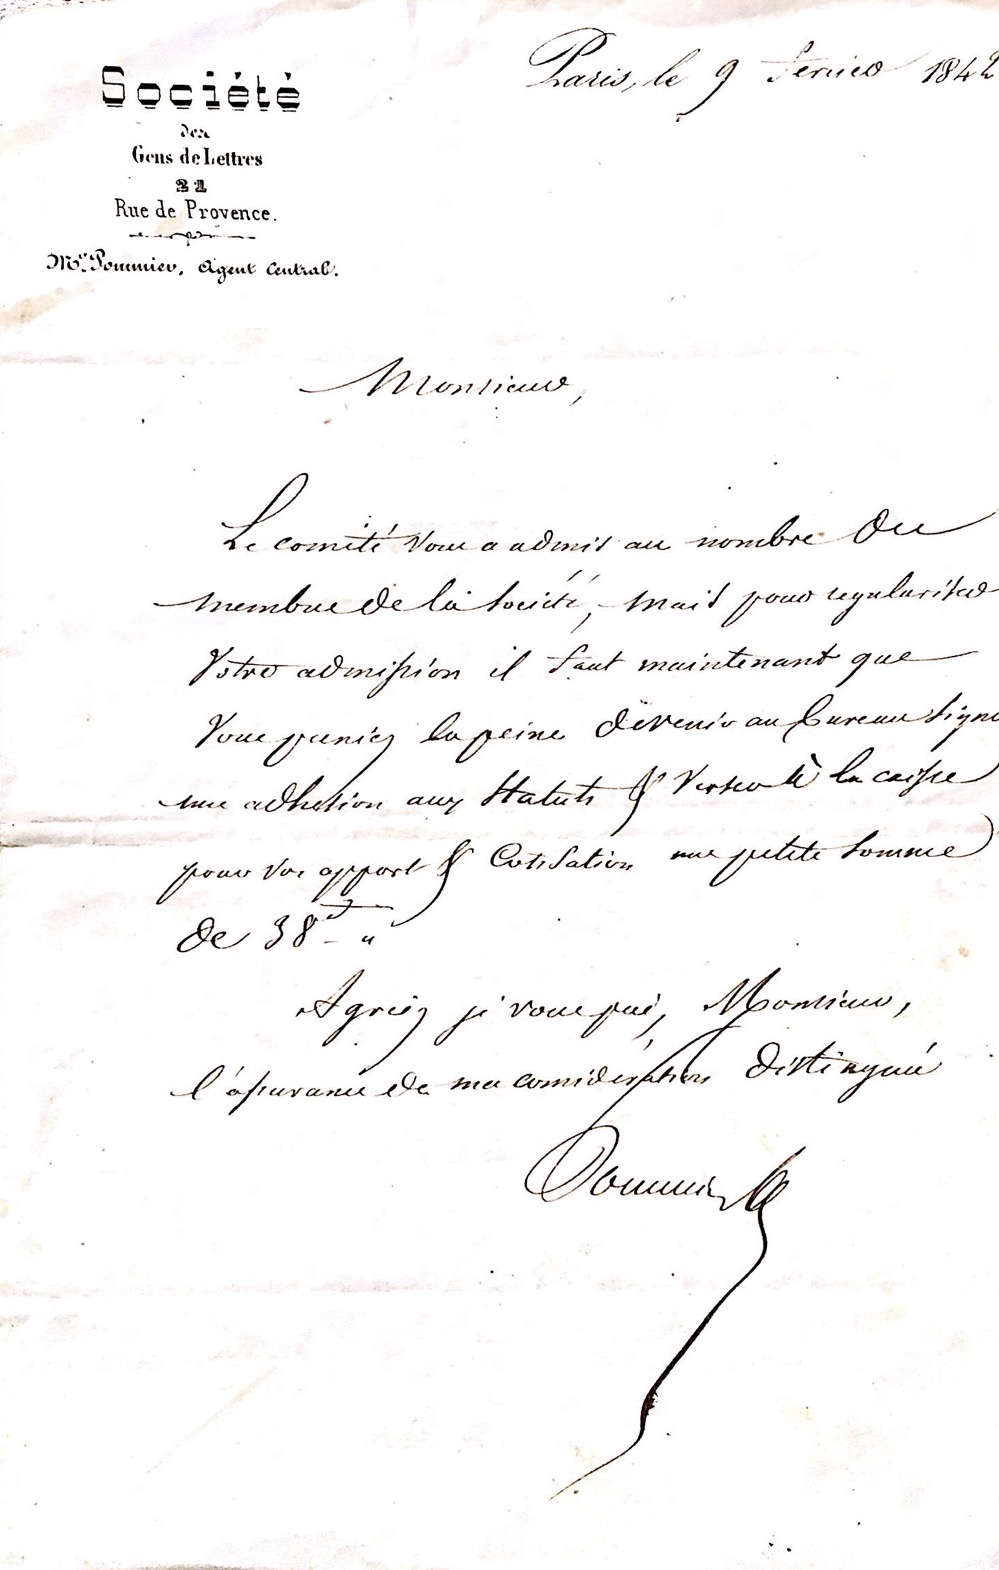 Paris, le 9 février 1842
Société
des
Gens de Lettres
21
Rue de Provence.
Mr. Pommier, Agent Central.
Monsieur,
Le comité vous a admis au nombre des
membres de la société, mais pour régulariser
votre admission il faut maintenant que
vous preniez la peine de venir au bureau signer
une adhésion aux statuts & verser à la caisse
pour vos apport & Cotisation une petite somme
de 38 "
Agréez je vous prie, Monsieur,
l'assurance de ma considération distinguée
Pommier